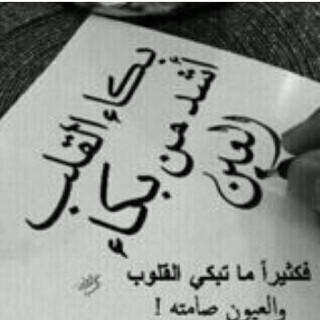 بكاء القلب
أشد من بكاء
العين
فكثيراً ما تبكي القلوب
والعيون صامته !